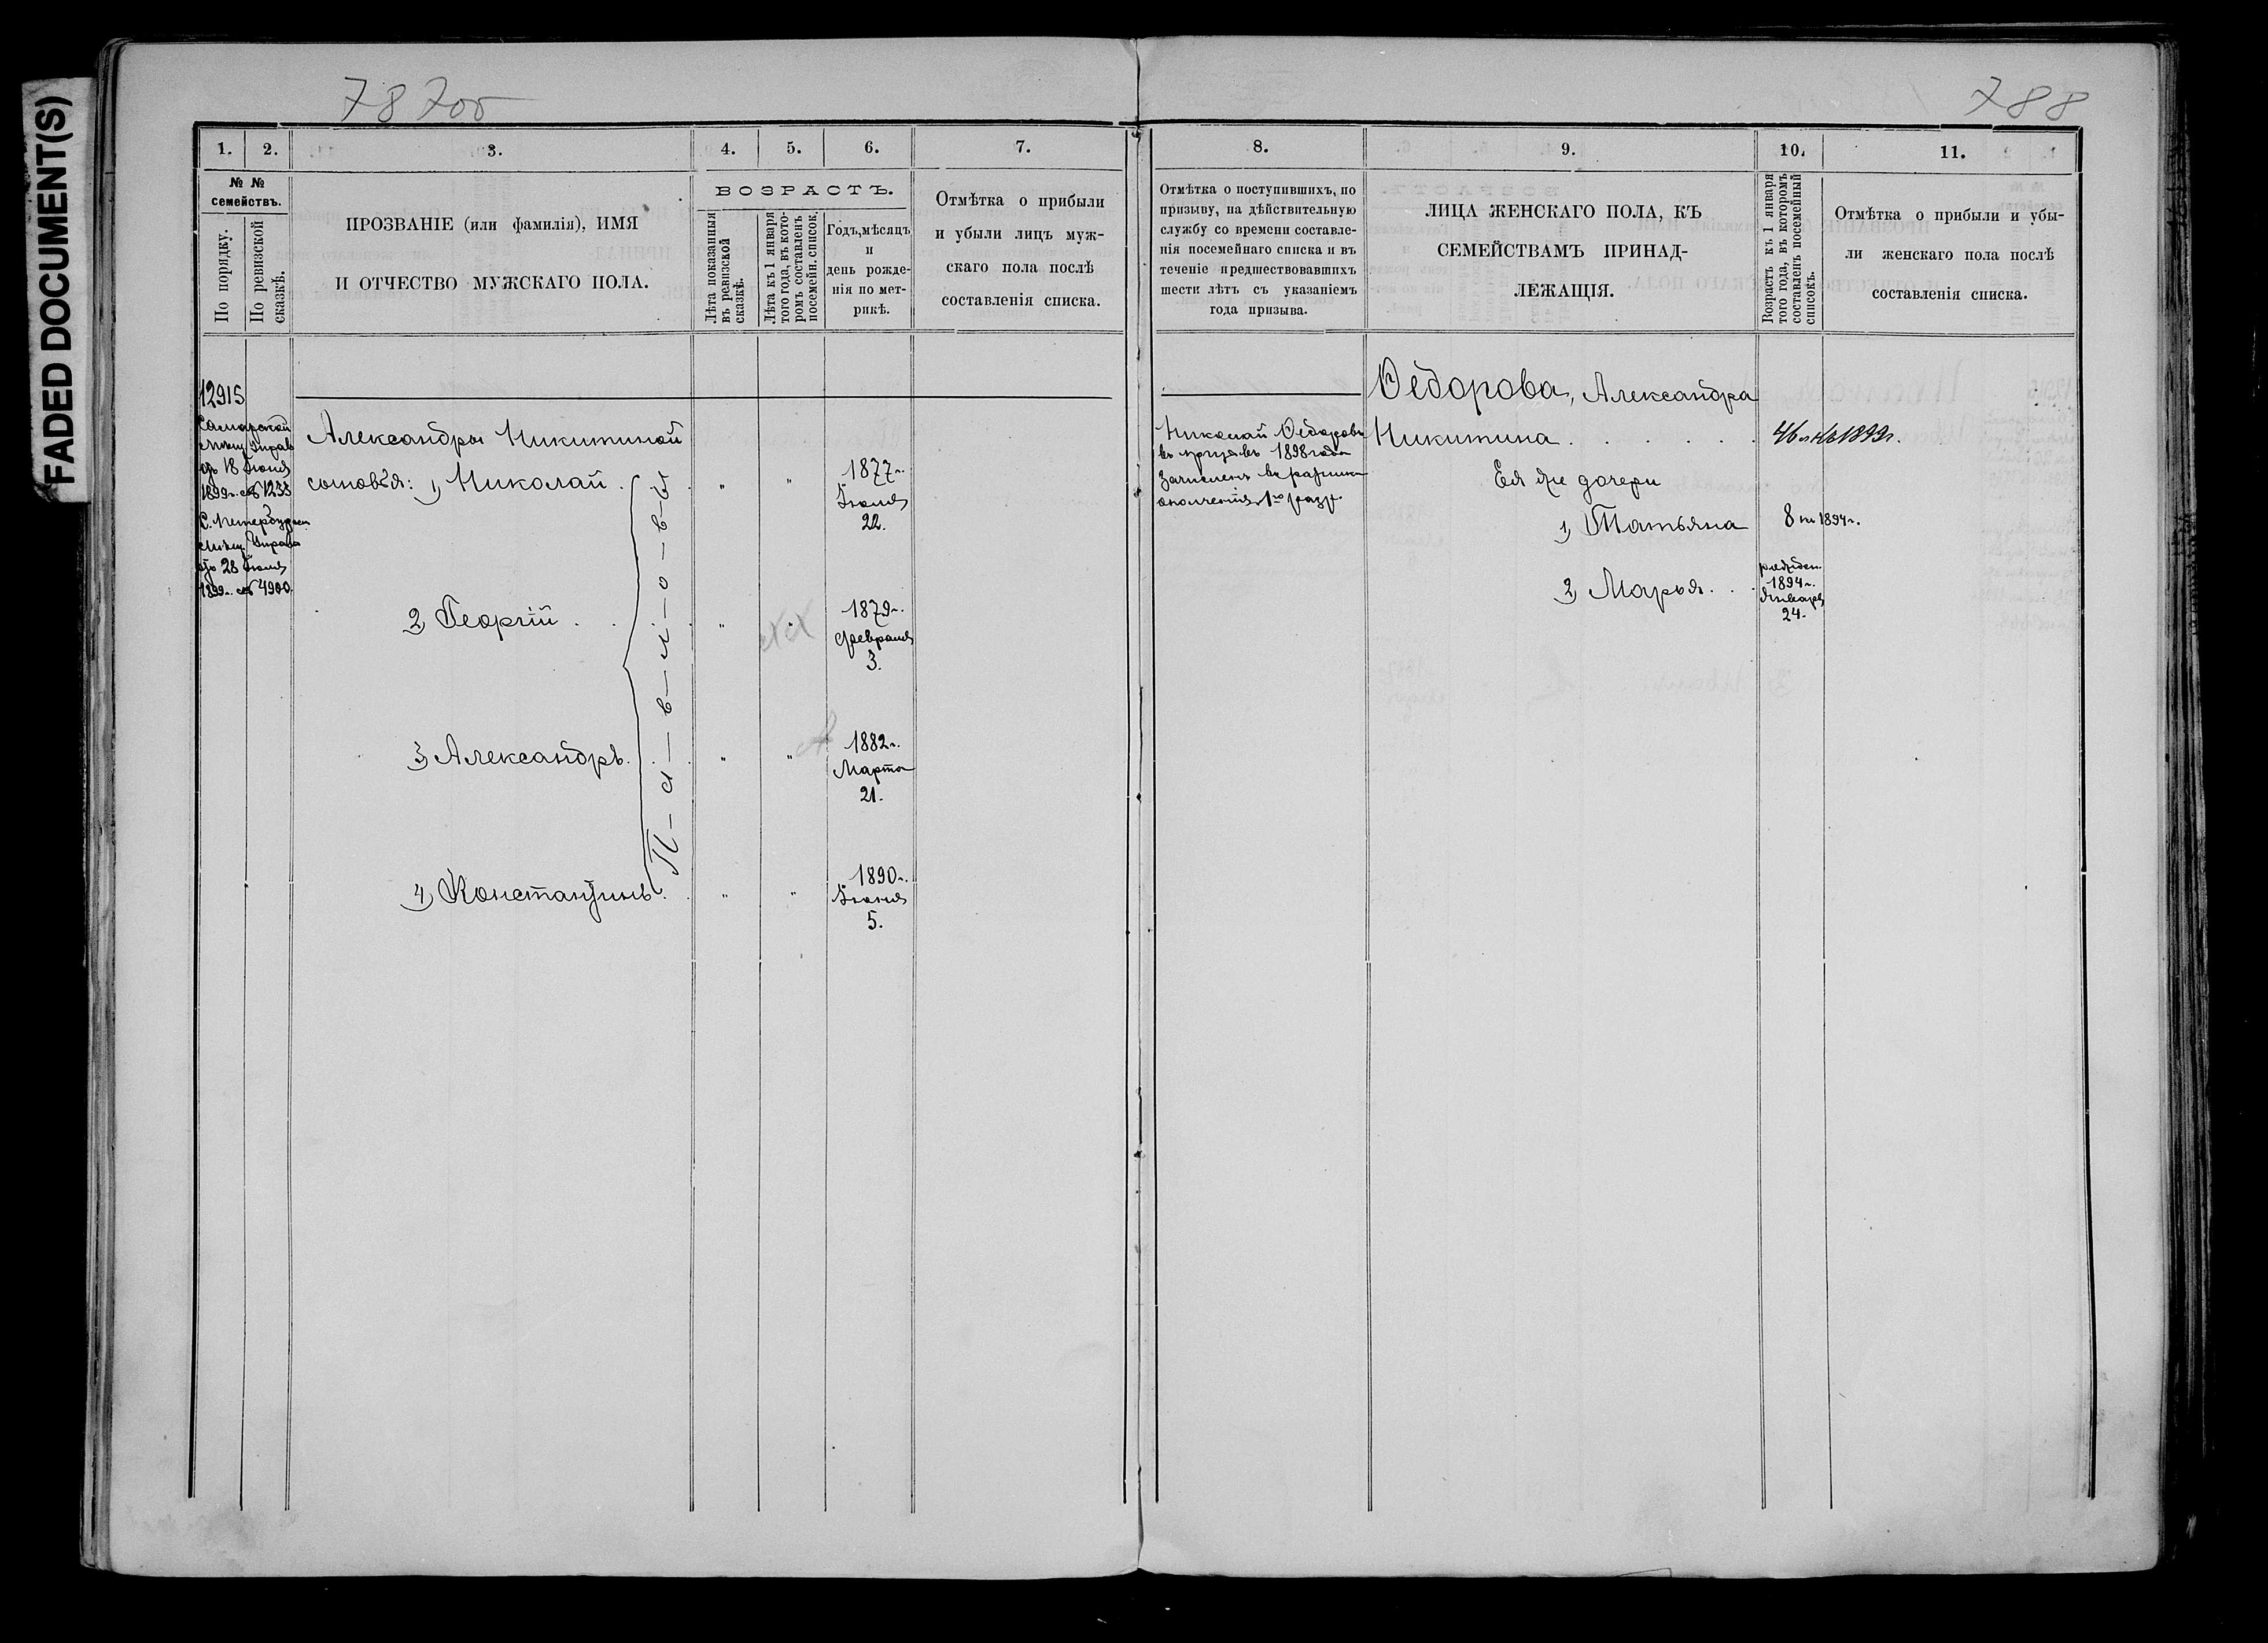 FADED DOCUMENT(S)
787об
788
1. 2. 3. 4. 5. 6. 7.
№ №
семействъ.
По порядку.
По ревизской
сказкѣ.
ПРОЗВАНІЕ (или фамилія), ИМЯ
И ОТЧЕСТВО МУЖСКАГО ПОЛА.
ВОЗРАСТЪ.
Лѣта показанныя
въ ревизской
сказкѣ.
Лѣта къ 1 января
того года, въ кото-
ромъ составленъ
посемейн. список.
Годъ, мѣсяцъ
и
день рожде-
нія по мет-
рикѣ.
Отмѣтка о прибыли
и убыли лицъ муж-
скаго пола послѣ
составленія списка.
12915
Самарской
мѣщ. Управ
отъ 18 Іюня
1899 г. за № 1233
С. Петербургск
мѣщ. Управа
отъ 28 Іюня
1899 г. за № 4900.
Александры Никитиной
сыновья: 1, Николай . " " 1877 г.
Іюля
22.
2, Георгій . . . " " 1879 г.
Февраля
3.
3, Александръ. . . " " 1882 г.
Марта
21.
4, Константинъ. . " " 1890 г.
Іюня
5.
П-а-в-л-о-в-ы
8. 9. 10. 11.
Отмѣтка о поступившихъ, по
призыву, на дѣйствительную
службу со времени составле-
нія посемейнаго списка и въ
теченіе предшествовавшихъ
шести лѣтъ съ указаніемъ
года призыва.
ЛИЦА ЖЕНСКАГО ПОЛА, КЪ
СЕМЕЙСТВАМЪ ПРИНАД-
ЛЕЖАЩІЯ.
Возрастъ къ 1 января
того года, въ которомъ
составленъ посемейный
списокъ.
Отмѣтка о прибыли и убы-
ли женскаго пола послѣ
составленія списка.
Николай Ѳедоровъ
въ призывъ 1898 года
зачисленъ въ ратники
ополченія 1го разр.
Ѳедорова, Александра
Никитина . . . . . . 46 л. къ 1899 г.
Ея же дочери
1, Татьяна 8 1894 г.
2, Марья . . рожден.
1894 г.
Января
24.